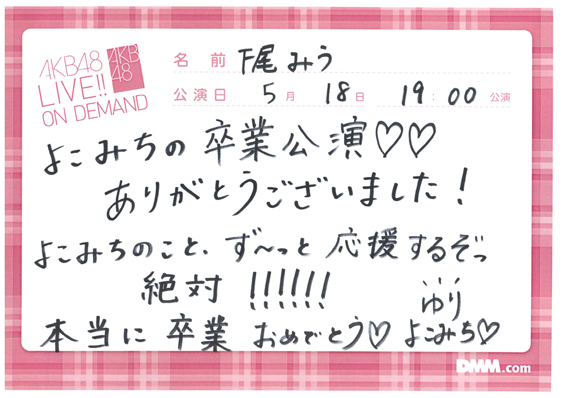 AKB48
LIVE!!
ON DEMAND
AKB
48
名前 下尾みう
公演日 5月 18日 19:00 公演
よこみちの 卒業公演♡♡
ありがとうございました!
よこみちのこと、ず〜っと 応援するぞっ
絶対 !!!!!!
ゆり
本当に 卒業 おめでとう♡ よこみち♡
DMM.com